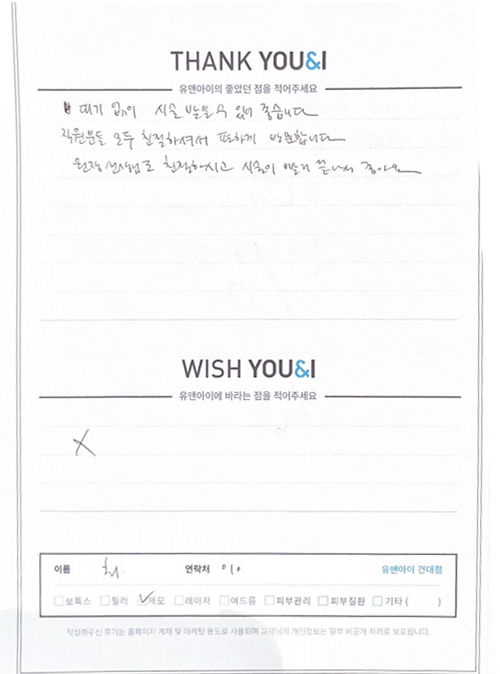 THANK YOU&I
유앤아이의 좋았던 점을 적어주세요
대기 없이 시술 받을 수 있어 좋습니다
직원분들 모두 친절하셔서 편하게 방문합니다
원장선생님도 친절하시고 시술이 빨리 끝나서 좋아요
WISH YOU&I
유앤아이에 바라는 점을 적어주세요
X
이름 최 연락처 010 유앤아이 건대점
보톡스 필러 제모 레이저 여드름 피부관리 피부질환 기타 ( )
작성해주신 후기는 홈페이지 게재 및 마케팅 용도로 사용되며 고객님의 개인정보는 일부 비공개 처리로 보호됩니다.